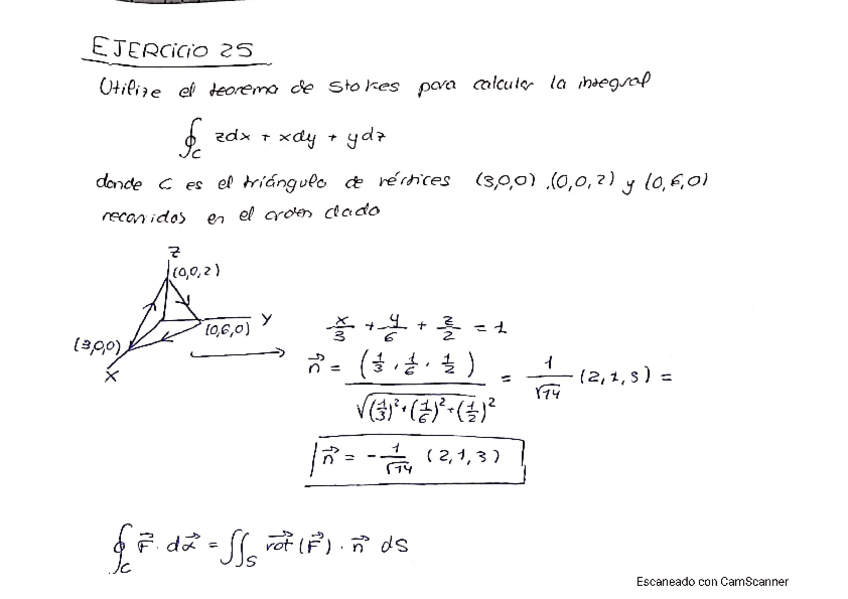 EJERCICIO 25
Utilize el teorema de Stokes para calcular la integral
∮_C zdx + xdy + ydz
donde C es el triángulo de vértices (3,0,0), (0,0,2) y (0,6,0)
recorridos en el orden dado
Z
(0,0,2)
Y
(0,6,0)
(3,0,0)
X
x/3 + y/6 + z/2 = 1
n⃗ = (1/3, 1/6, 1/2) / √((1/3)²+(1/6)²+(1/2)²) = 1/√14 (2,1,3) =
n⃗ = -1/√14 (2,1,3)
∮_C F⃗ · dα⃗ = ∬_S rot⃗(F⃗) · n⃗ dS
Escaneado con CamScanner